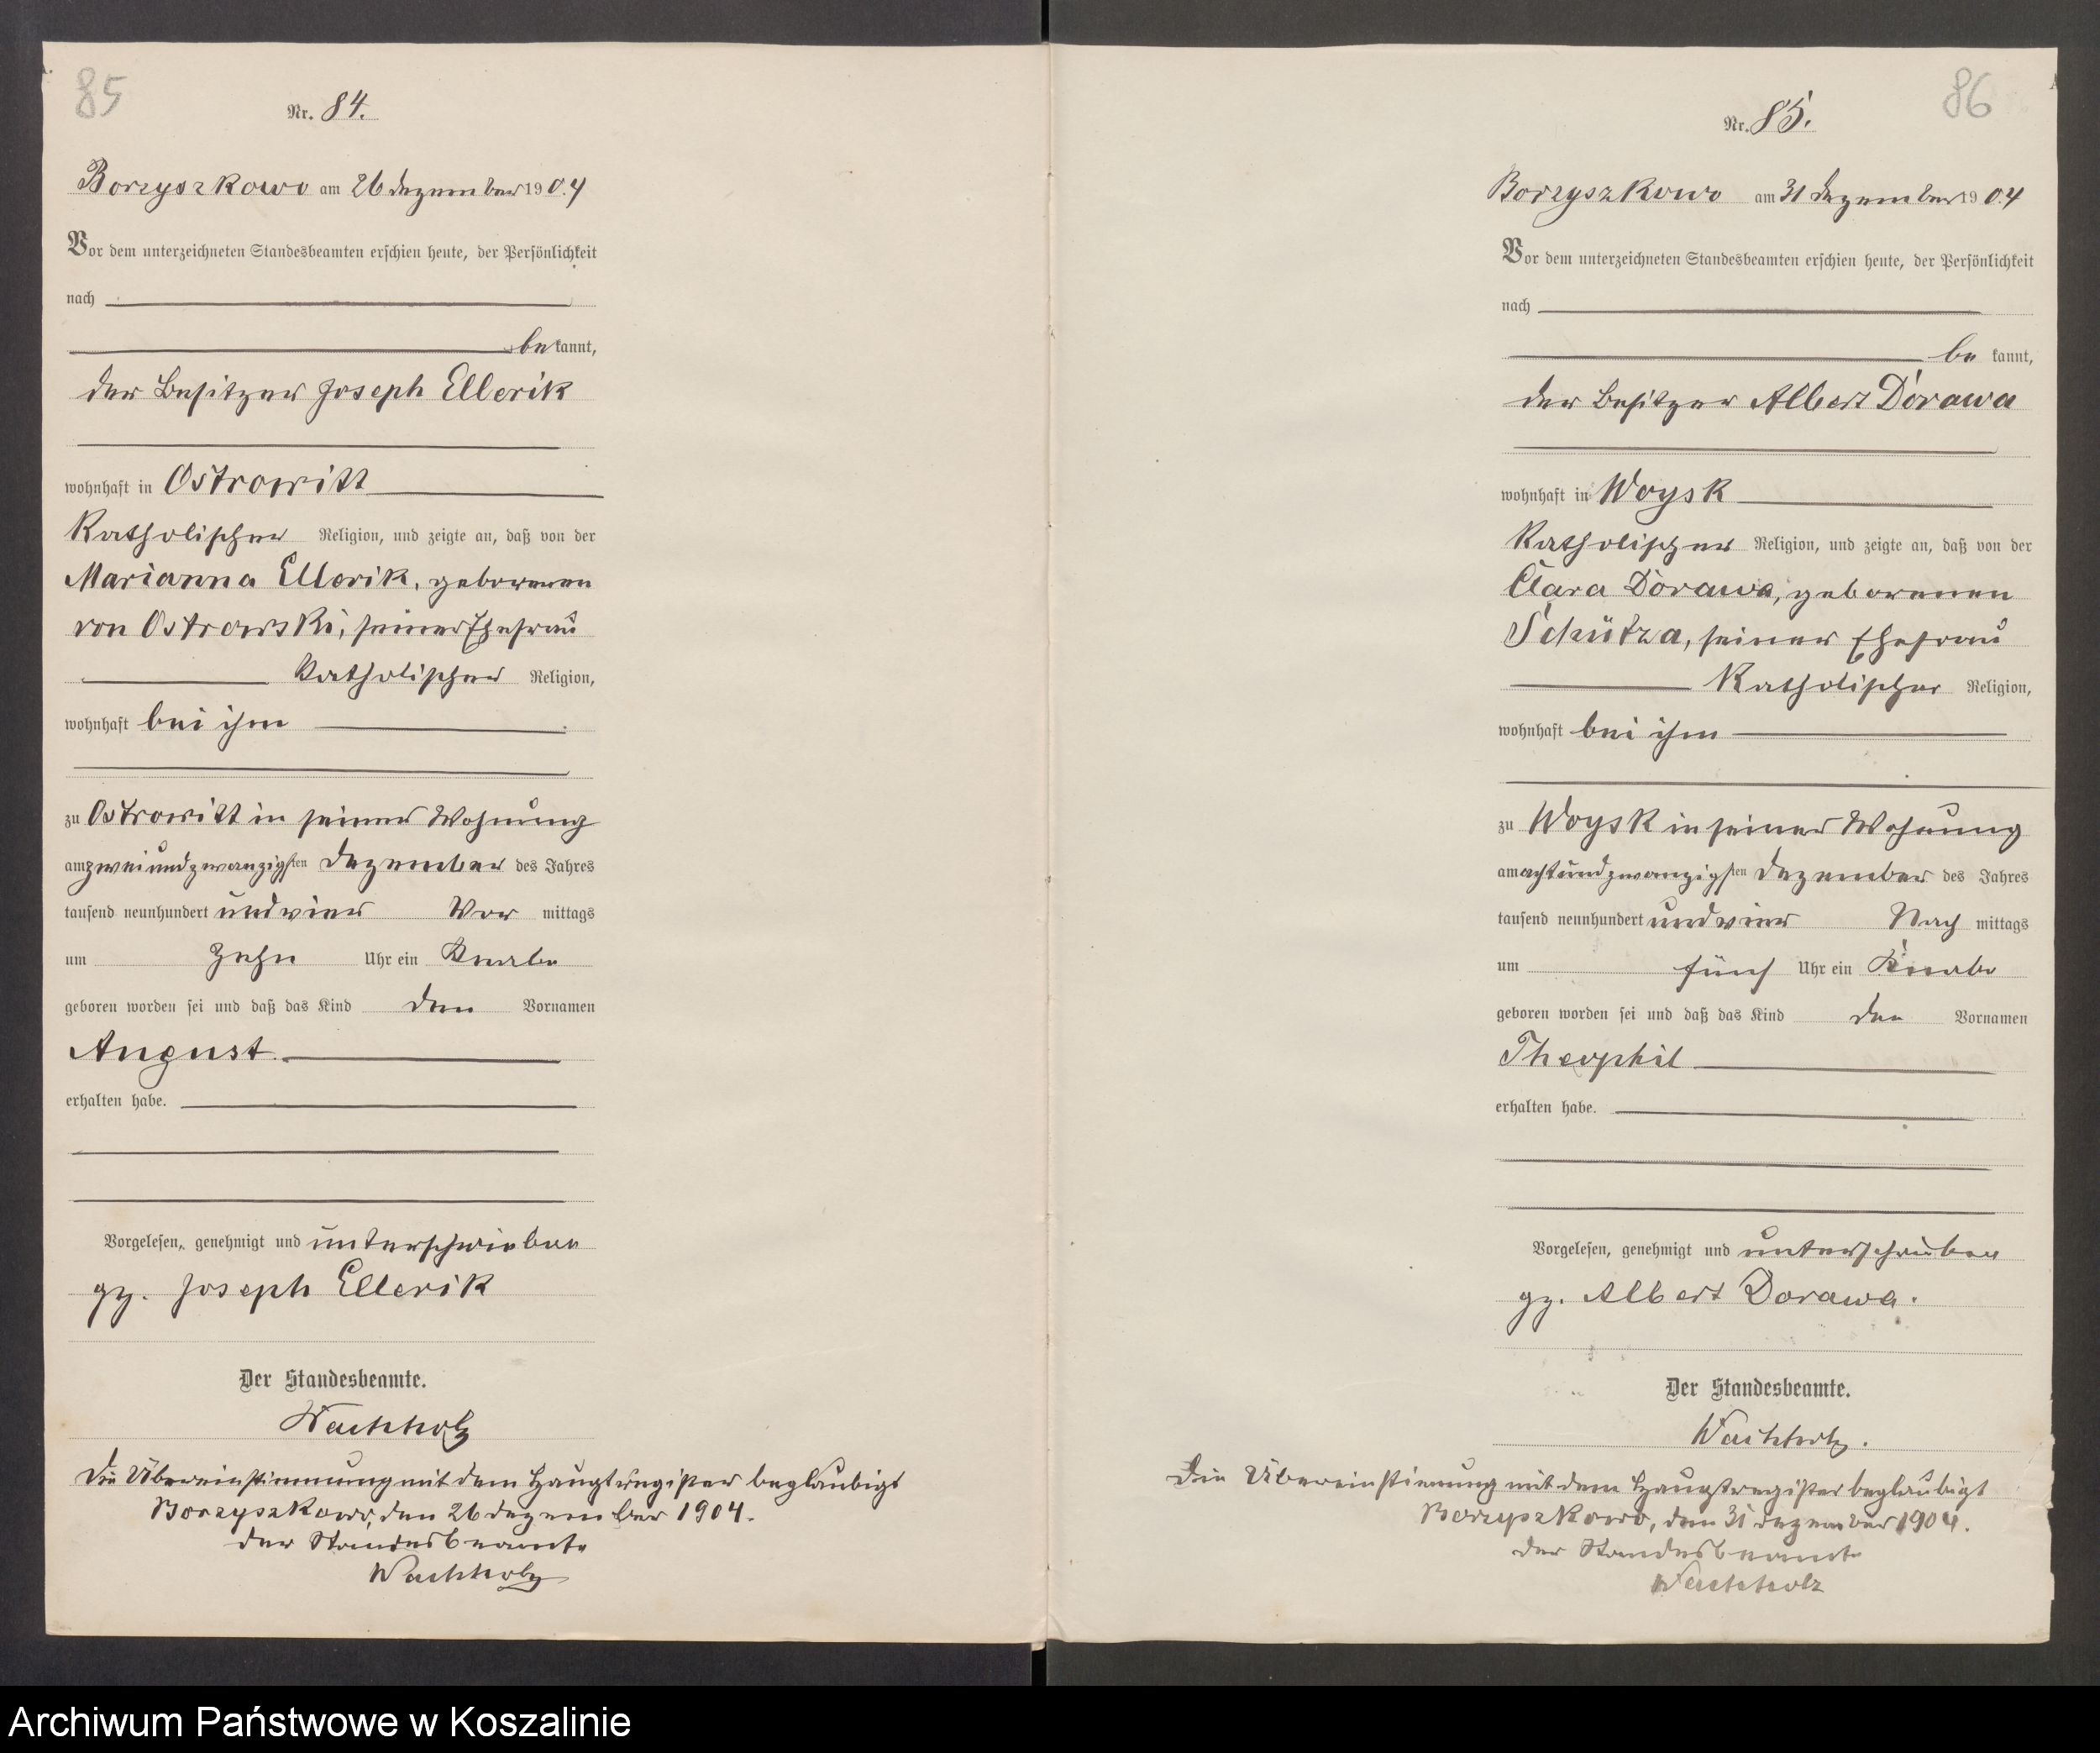 85
Nr. 84.
Borzyszkowo am 26 Dezember 1904
Vor dem unterzeichneten Standesbeamten erschien heute, der Persönlichkeit
nach
bekannt,
der Besitzer Joseph Ellerik
wohnhaft in Ostrowitt
Katholischer Religion, und zeigte an, daß von der
Marianna Ellerik, geborenen
von Ostrowski, seiner Ehefrau
Katholischer Religion,
wohnhaft bei ihm
zu Ostrowitt in seiner Wohnung
am zweiundzwanzigsten Dezember des Jahres
tausend neunhundert und vier Vor mittags
um zehn Uhr ein Knabe
geboren worden sei und daß das Kind den Vornamen
August
erhalten habe.
Vorgelesen, genehmigt und unterschrieben
gz. Joseph Ellerik
Der Standesbeamte.
Wachholz
Die Übereinstimmung mit dem Hauptregister beglaubigt
Borzyszkowo, den 26 Dezember 1904.
Der Standesbeamte
Wachholz
86
Nr. 85.
Borzyszkowo am 31 Dezember 1904
Vor dem unterzeichneten Standesbeamten erschien heute, der Persönlichkeit
nach
be kannt,
der Besitzer Albert Dorawa
wohnhaft in Woysk
Katholischer Religion, und zeigte an, daß von der
Clara Dorawa, geborenen
Schütza, seiner Ehefrau
Katholischer Religion,
wohnhaft bei ihm
zu Woysk in seiner Wohnung
am achtundzwanzigsten Dezember des Jahres
tausend neunhundert und vier Nach mittags
um fünf Uhr ein Knabe
geboren worden sei und daß das Kind den Vornamen
Theophil
erhalten habe.
Vorgelesen, genehmigt und unterschrieben
gz. Albert Dorawa.
Der Standesbeamte.
Wachholz.
Die Übereinstimmung mit dem Hauptregister beglaubigt
Borzyszkowo, den 31 Dezember 1904.
Der Standesbeamte
Wachholz
Archiwum Państwowe w Koszalinie